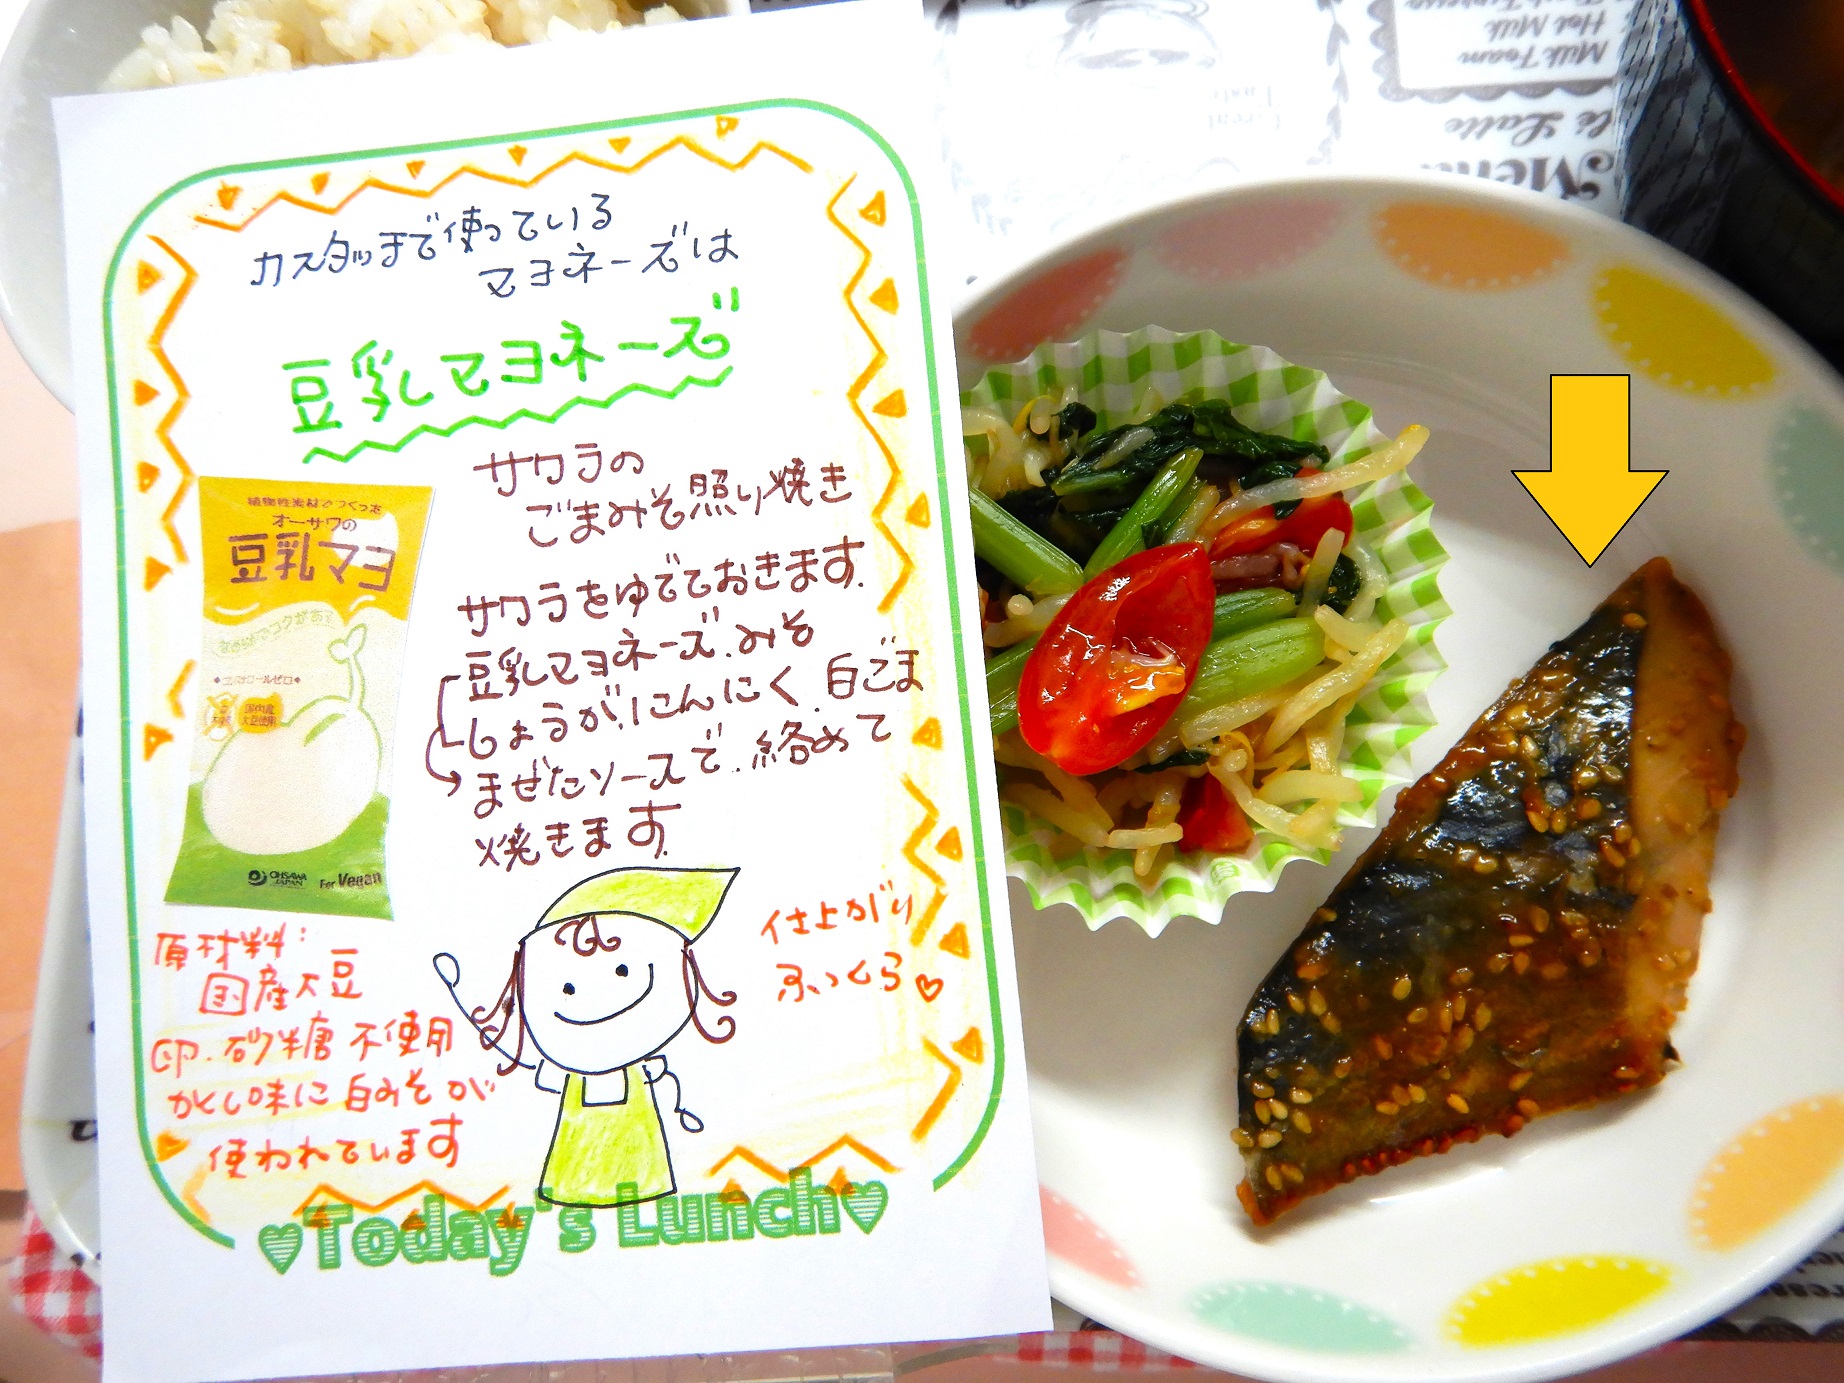 カスタッチで使っている
マヨネーズは
豆乳マヨネーズ
サワラの
ごまみそ照り焼き
サワラをゆでておきます.
豆乳マヨネーズ.みそ
しょうが.にんにく.白ごま
まぜたソースで.絡めて
焼きます.
仕上がり
ふっくら♡
植物性素材でつくった
オーサワの
豆乳マヨ
国内産
大豆使用
OHSAWA
JAPAN
For Vegan
原材料:
国産大豆
卵.砂糖 不使用
かくし味に白みそが
使われています
♥Today's Lunch♥
Hot Milk
Milk Foam
Latte
Menu